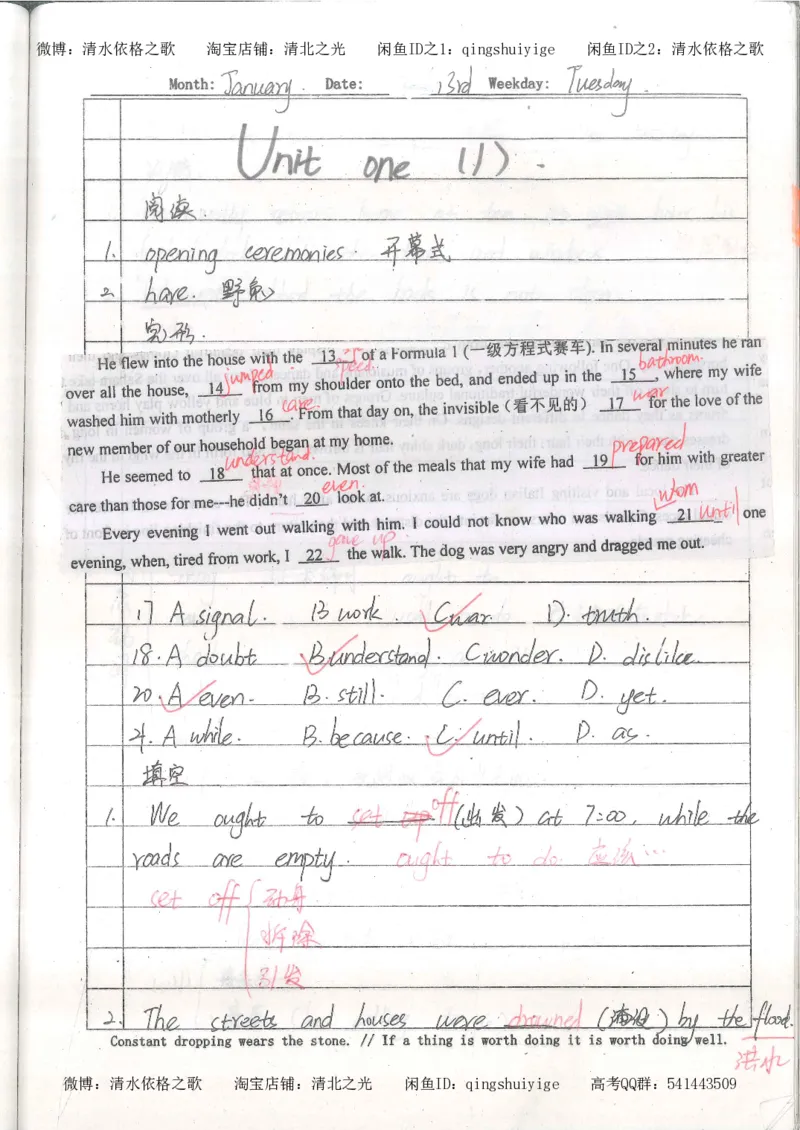 微博：清水依格之歌 淘宝店铺：清北之光 闲鱼ID之1：qingshuiyige 闲鱼ID之2：清水依格之歌
Month: January. Date: 13rd Weekday: Tuesday.
Unit one (1).
阅读.
1. opening ceremonies. 开幕式
2. hare. 野兔
完形.
He flew into the house with the 13 speed. of a Formula 1 (一级方程式赛车). In several minutes he ran
over all the house, 14 jumped from my shoulder onto the bed, and ended up in the 15 bathroom., where my wife
washed him with motherly 16 care. . From that day on, the invisible (看不见的) 17 war for the love of the
new member of our household began at my home.
He seemed to 18 understand. that at once. Most of the meals that my wife had 19 prepared for him with greater
care than those for me---he didn't 20 even. look at.
Every evening I went out walking with him. I could not know who was walking whom 21 until one
evening, when, tired from work, I 22 gave up. the walk. The dog was very angry and dragged me out.
17 A signal. B work C war D. truth.
18. A doubt B understand. C wonder. D. dislike.
20. A even. B. still. C. ever. D. yet.
21. A while. B. because. C. until. D. as.
填空
1. We ought to set off (出发) at 7:00, while the
roads are empty. ought to do 应该…
set off { 动身
拆除
引发
2. The streets and houses were drowned (淹没) by the flood.
洪水
Constant dropping wears the stone. // If a thing is worth doing it is worth doing well.
微博：清水依格之歌 淘宝店铺：清北之光 闲鱼ID：qingshuiyige 高考QQ群：541443509